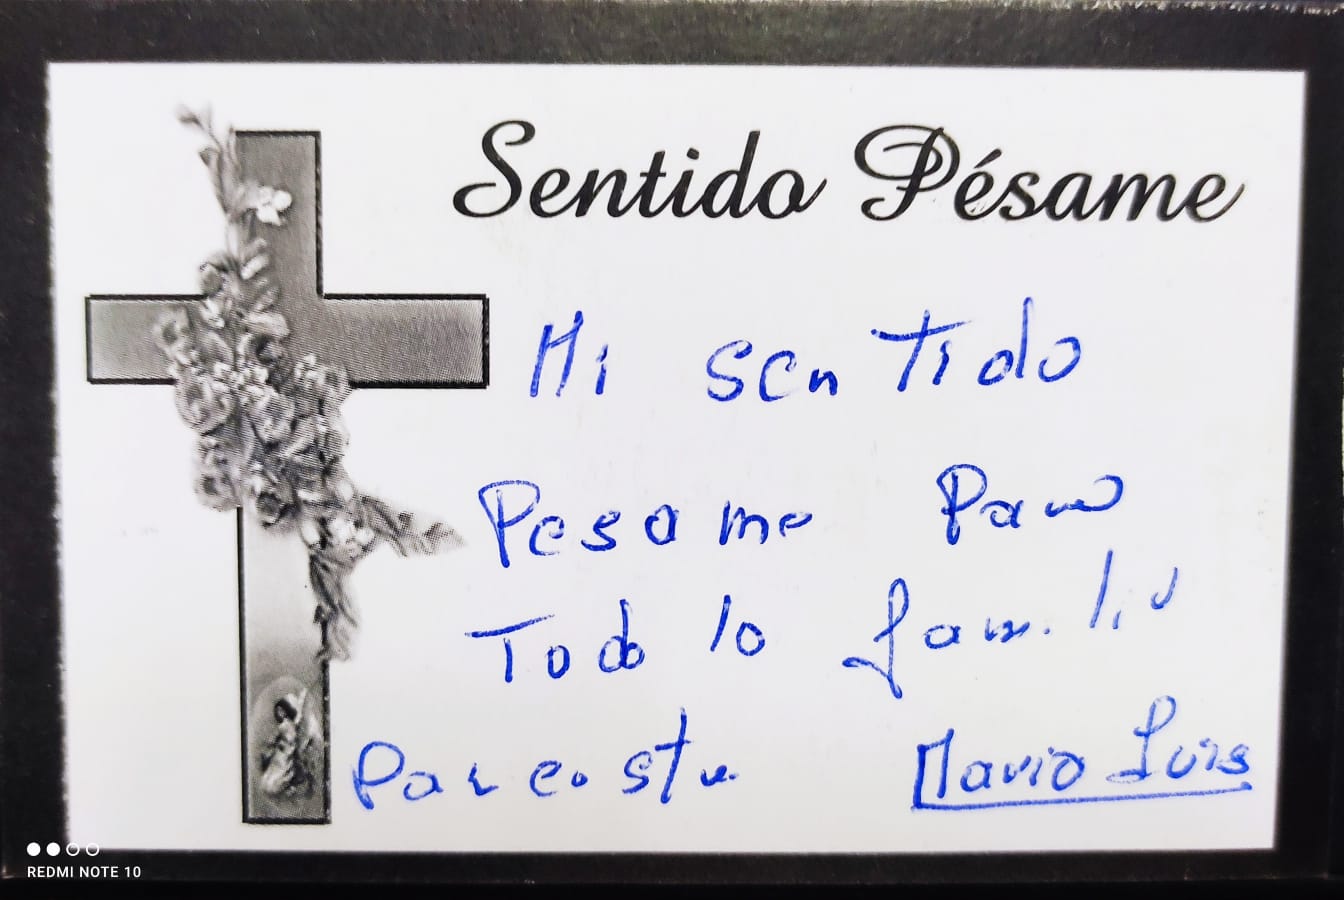 Sentido Pésame
Mi sentido
Pesame Para
Toda la familia
Mario Luis
REDMI NOTE 10